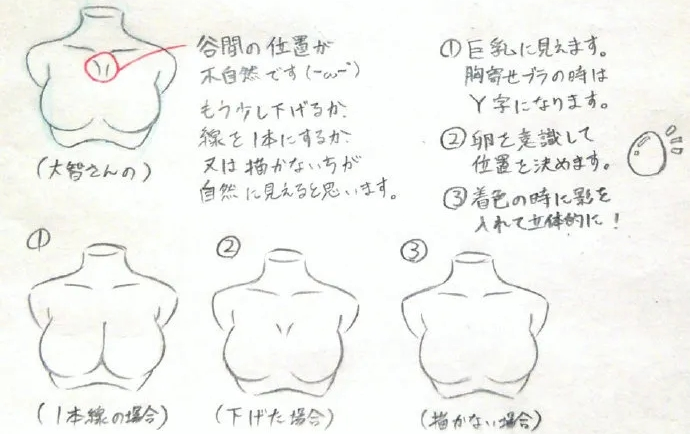 谷間の位置が
不自然です(-ω-˝)
もう少し下げるか、
線を1本にするか、
又は描かないちが
自然に見えると思います。
(大智さんの)
① 巨乳に見えます。
胸寄せブラの時は
Y字になります。
② 卵を意識して
位置を決めます。
③ 着色の時に影を
入れて立体的に!
①
(1本線の場合)
②
(下げた場合)
③
(描かない場合)